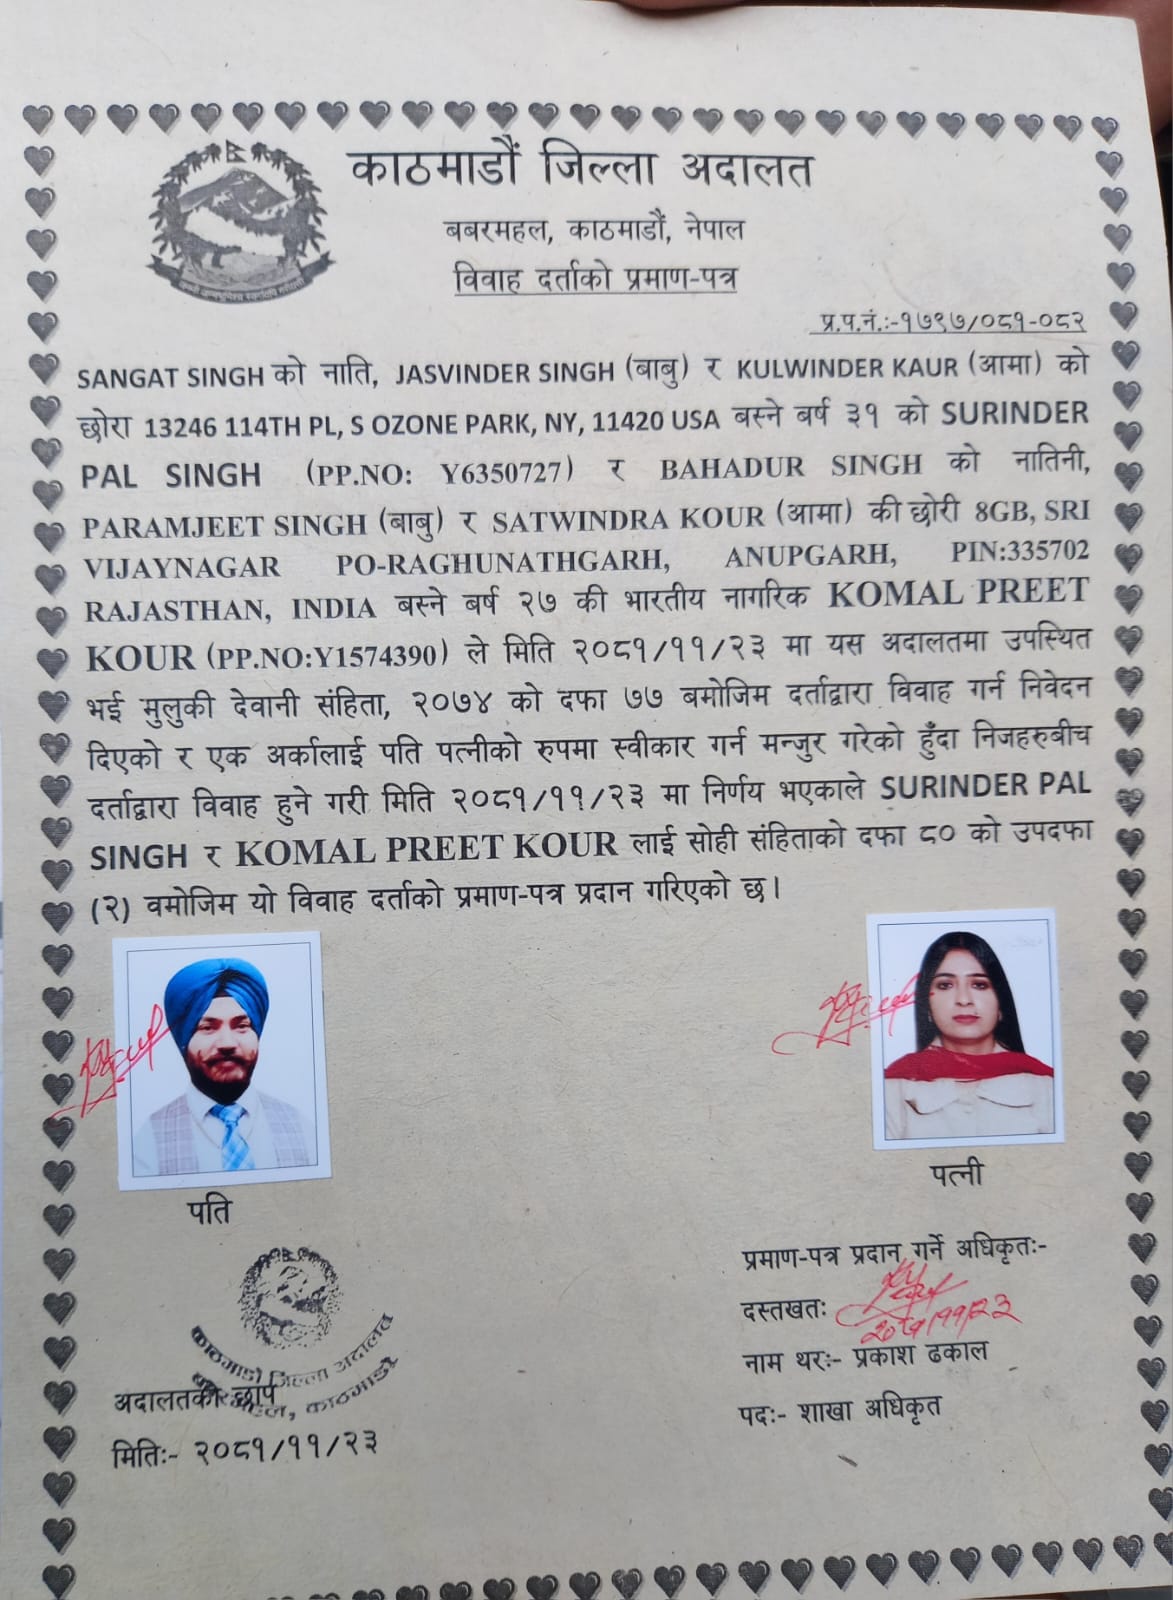 काठमाडौं जिल्ला अदालत
बबरमहल, काठमाडौं, नेपाल
विवाह दर्ताको प्रमाण-पत्र
प्र.प.नं.:-१७९७/०८१-०८२
SANGAT SINGH को नाति, JASVINDER SINGH (बाबु) र KULWINDER KAUR (आमा) को
छोरा 13246 114TH PL, S OZONE PARK, NY, 11420 USA बस्ने बर्ष ३१ को SURINDER
PAL SINGH (PP.NO: Y6350727) र BAHADUR SINGH को नातिनी,
PARAMJEET SINGH (बाबु) र SATWINDRA KOUR (आमा) की छोरी 8GB, SRI
VIJAYNAGAR PO-RAGHUNATHGARH, ANUPGARH, PIN:335702
RAJASTHAN, INDIA बस्ने बर्ष २७ की भारतीय नागरिक KOMAL PREET
KOUR (PP.NO:Y1574390) ले मिति २०८१/११/२३ मा यस अदालतमा उपस्थित
भई मुलुकी देवानी संहिता, २०७४ को दफा ७७ बमोजिम दर्ताद्वारा विवाह गर्न निवेदन
दिएको र एक अर्कालाई पति पत्नीको रुपमा स्वीकार गर्न मन्जुर गरेको हुँदा निजहरुबीच
दर्ताद्वारा विवाह हुने गरी मिति २०८१/११/२३ मा निर्णय भएकाले SURINDER PAL
SINGH र KOMAL PREET KOUR लाई सोही संहिताको दफा ८० को उपदफा
(२) वमोजिम यो विवाह दर्ताको प्रमाण-पत्र प्रदान गरिएको छ।
पति
पत्नी
प्रमाण-पत्र प्रदान गर्ने अधिकृतः-
दस्तखतः
२०८१/११/२३
नाम थरः- प्रकाश ढकाल
पदः- शाखा अधिकृत
काठमाडौं जिल्ला अदालत
बबरमहल, काठमाडौं
अदालतको छाप
मितिः- २०८१/११/२३